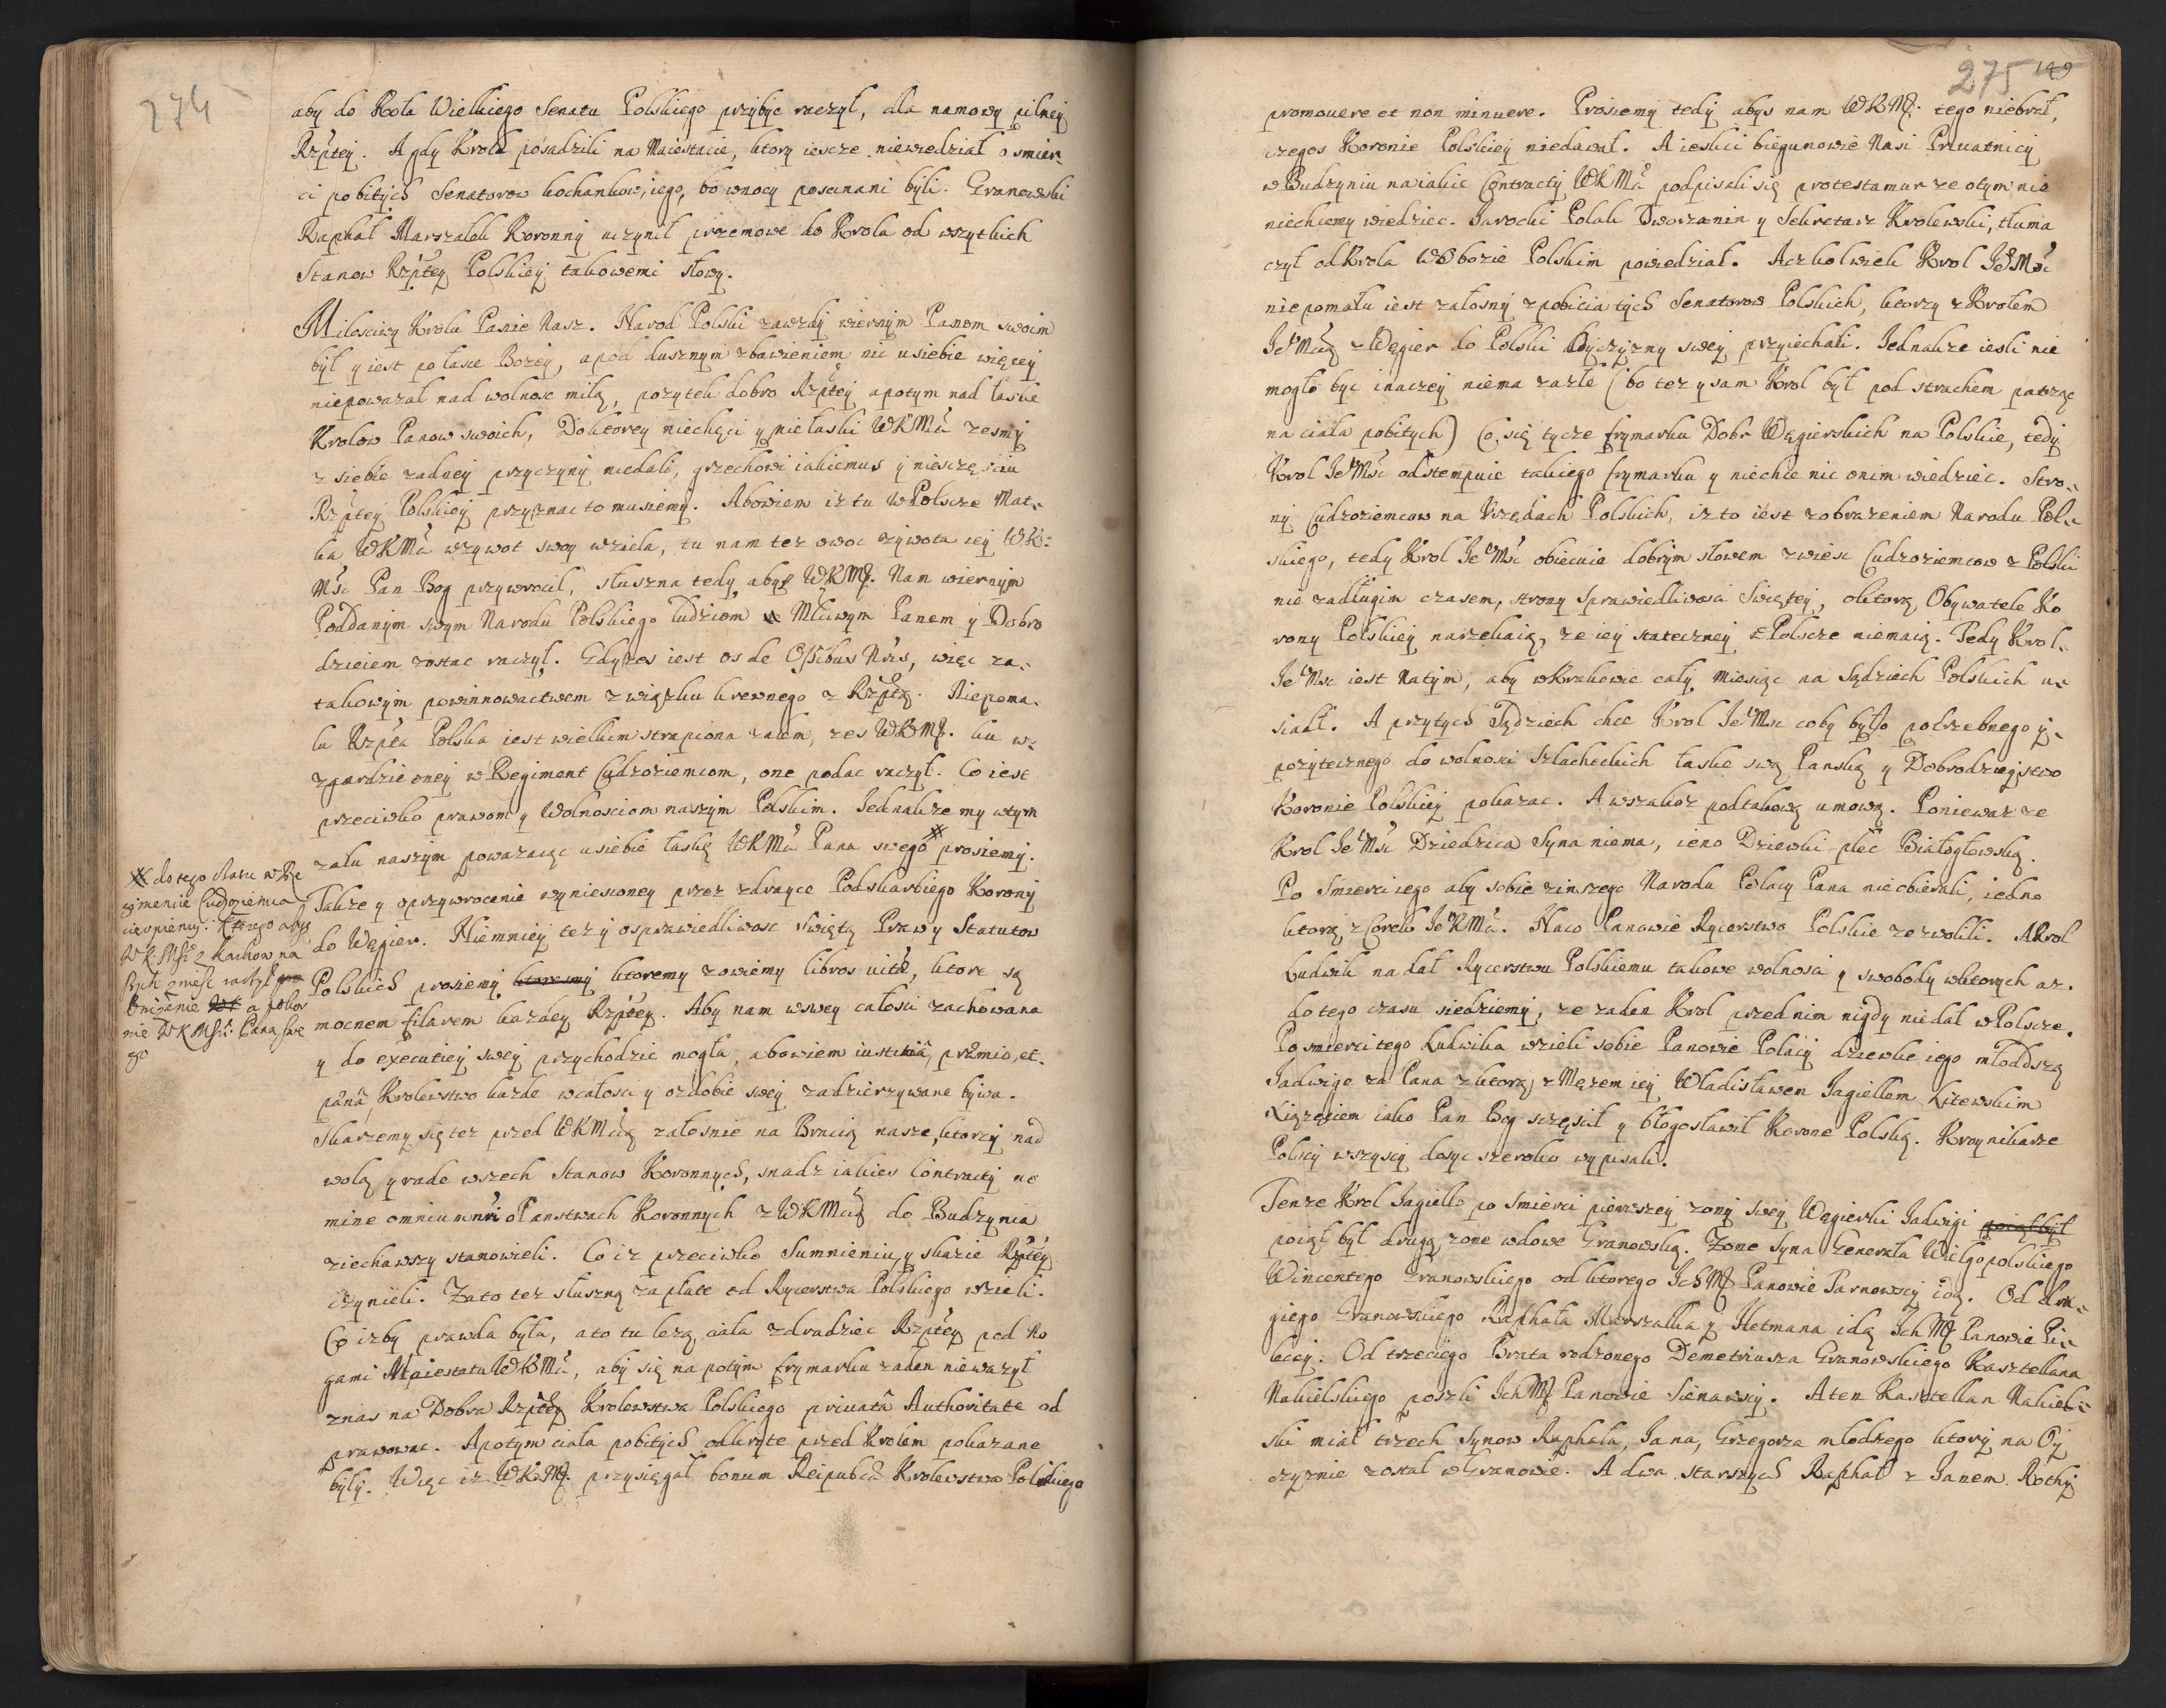 274
aby do Koła Wielkiego Senatu Polskiego przybyc raczył, dla namowy pilney
Rzptey. A gdy Krola posadzili na Maiestacie, ktory iescze niewiedział o smier-
ci pobitych Senatorow kochankow iego, bo wnocy poscinani byli. Granowski
Raphał Marszałek Koronny uczynił przemowe do Krola od wszytkich
Stanow Rzptey Polskiey takowemi słowy.
Miłosciwy Krolu Panie Nasz. Narod Polski zawzdy wiernym Panom swoim
był y iest po łasce Bozey, a pod dusznym zbawieniem nic u siebie więcey
niepowazał nad wolnosc miłą, pozytek dobro Rzptey a potym nad łaske
Krolow Panow swoich, Doktorey niechęci y niełaski WKMci zesmy
z siebie zadney przyczyny niedali, grzechowi iakiemus y niesczęsciu
Rzptey Polskiey przyznac to musiemy. Abowiem iz tu w Polscze Mat-
ka WKMci wzywot swoy wzieła, tu nam tez owoc zywota iey WK:
Msc Pan Bog przywrocił, słuszna tedy abys WKM. Nam wiernym
Poddanym swym Narodu Polskiego ludziom Mciwym Panem y Dobro
dzieiem zostac raczył. Gdyzes iest os de Ossibus Nris, więc za-
takowym powinnowactwem z wiązku krewnego z Rzptą. Niepoma-
łu Rzpta Polska iest wielkim strapiona zalem, zes WKM. ku w-
zgardzie oney w Regiment Cudzoziemcom, one podac raczył. Co iest
przeciwko prawom y Wolnosciom naszym Polskim. Jednakze my wtym
zalu naszym powazaiąc usiebie łaskę WKMci Pana swego # prosiemy.
# do tego czasu w Re
gimencie Cudzoziemca
cierpiemy: Ktorego abys
WK. Msc z karkow na
szych zniesc raczył
unizenie a pokor
nie WK Msci Pana swe
go
Takze y oprzywrocenie wyniesioney przez zdrayce Podskarbiego Korony
do Węgier. Niemniey tez y osprawiedliwosc swiętą Praw y Statutow
Polskich prosiemy ktoremy ktoremy zowiemy libros vitæ, ktore są
mocnem filarem kazdey Rzptey. Aby nam wswey całosci zachowana
y do executiey swey przychodzic mogła, abowiem iustitiâ, præmio, et
pænâ, Krolewstwo kazde wcałosci y ozdobie swey zadzierzywane bywa.
Skarzemy się tez przed WKMcią załosnie na Bracią nasze, ktorzy nad
wolą y rade wszech Stanow Koronnych, snadz iakies Contracty no
mine omnium nri o Panstwach Koronnych z WKMcią do Budzynia
ziechawszy stanowieli. Co iz przeciwko Sumnieniu, y skazie Rzptey
czynieli. Za to tez słuszną zapłate od Rycerstwa Polskiego wzieli.
Co izby prawda była, ato tu lezą ciała zdradziec Rzptey pod No
gami Maiestatu WKMci, aby się na potym frymarku zaden niewazył
znas na Dobra Rzptey Krolewstwa Polskiego privatâ Authoritate od
prawowac. Apotym ciała pobitych odkryte przed Krolem pokazane
były. Więc iz WKM. przysięgał bonum Reipublicæ Krolewstwa Polskiego
275 149
promovere et non minuere. Prosiemy tedy abys nam WKM. tego niebrał,
czegos Koronie Polskiey niedawał. A ieslici biegunowie Nasi Privatnicy
w Budzyniu na iakie Contracty WKMci podpisali się protestamur ze otym nic
niechcemy wiedziec. Jarocki Polak Dworzanin y Sekretarz Krolewski, tłuma
czył od Krola w Obozie Polskim powiedział. Aczkolwiek Krol JeMsc
nie pomału iest załosny z pobicia tych Senatorow Polskich, ktorzy z Krolem
JeMcią z Węgier do Polski Oyczyzny swey przyiechali. Jednakze iesli nie
mogło byc inaczey niema zazłe (bo tez y sam Krol był pod strachem patrząc
na ciała pobitych) Co się tycze frymarku Dobr Węgierskich na Polskie, tedy
Krol JeMsc odstempuie takiego frymarku y niechce nic onim wiedziec. Stro-
ny Cudzoziemcow na Urzędach Polskich, iz to iest z obrazeniem Narodu Pol-
skiego, tedy Krol JeMsc obiecuie dobrym słowem zwiesc Cudzoziemcow z Polski
nie zadługim czasem, strony Sprawiedliwosci Swiętey, oktorą Obywatele Ko
rony Polskiey narzekaią, ze iey stateczney w Polscze niemaią. Tedy Krol
JeMsc iest Natym, aby wKrakowie cały Miesiąc na Sądziech Polskich u-
siadł. A przytych Sądziech chce Krol JeMsc coby było potrzebnego y-
pozytecznego do wolnosci Szlacheckich łaske swą Panską y Dobrodzieystwo
Koronie Polskiey pokazac. A wszakoz podtakową umową. Poniewaz ze
Krol JeMsc Dziedzica Syna niema, ieno Dziewki płec Białogłowską.
Po Smierci iego aby sobie zinszego Narodu Polacy Pana nieobierali, iedno
ktorą z Corek JeKMci. Naco Panowie Rycerstwo Polskie zezwolili. A Krol
Ludwik nadał Rycerstwu Polskiemu takowe wolnosci y swobody wktorych az
do tego czasu siedziemy, ze zaden Krol przed nim nigdy niedał w Polscze.
Po smierci tego Ludwika wzieli sobie Panowie Polacy dziewke iego młodszą
Jadwige za Pana zktorą, z Męzem iey Władisławem Jagiellem Litewskim
Xiązęciem iako Pan Bog sczęscił y błogosławił Korone Polską. Kroynikarze
Polscy wszyscy dosyc szeroko wypisali.
Tenze Krol Jagiello po smierci pierwszey zony swey Węgierki Jadwigi poiął był
poiął był drugą zone wdowe Granowską. Zone Syna Generała Wielgopolskiego
Wincentego Granowskiego od ktorego Ich M Panowie Tarnowscy idą. Od dru-
giego Granowskiego Raphała Marszałka y Hetmana idą Ich M Panowie Pi-
leccy. Od trzeciego Brata rodzonego Demetriusza Granowskiego Kasztellana
Nakielskiego poszli Ich M Panowie Sienawscy. A ten Kasztellan Nakiel-
ski miał trzech Synow Raphała, Jana, Grzegorza młodzego ktory na Oy
czyznie został w Granowie. A dwa starszych Raphał z Janem Rothy